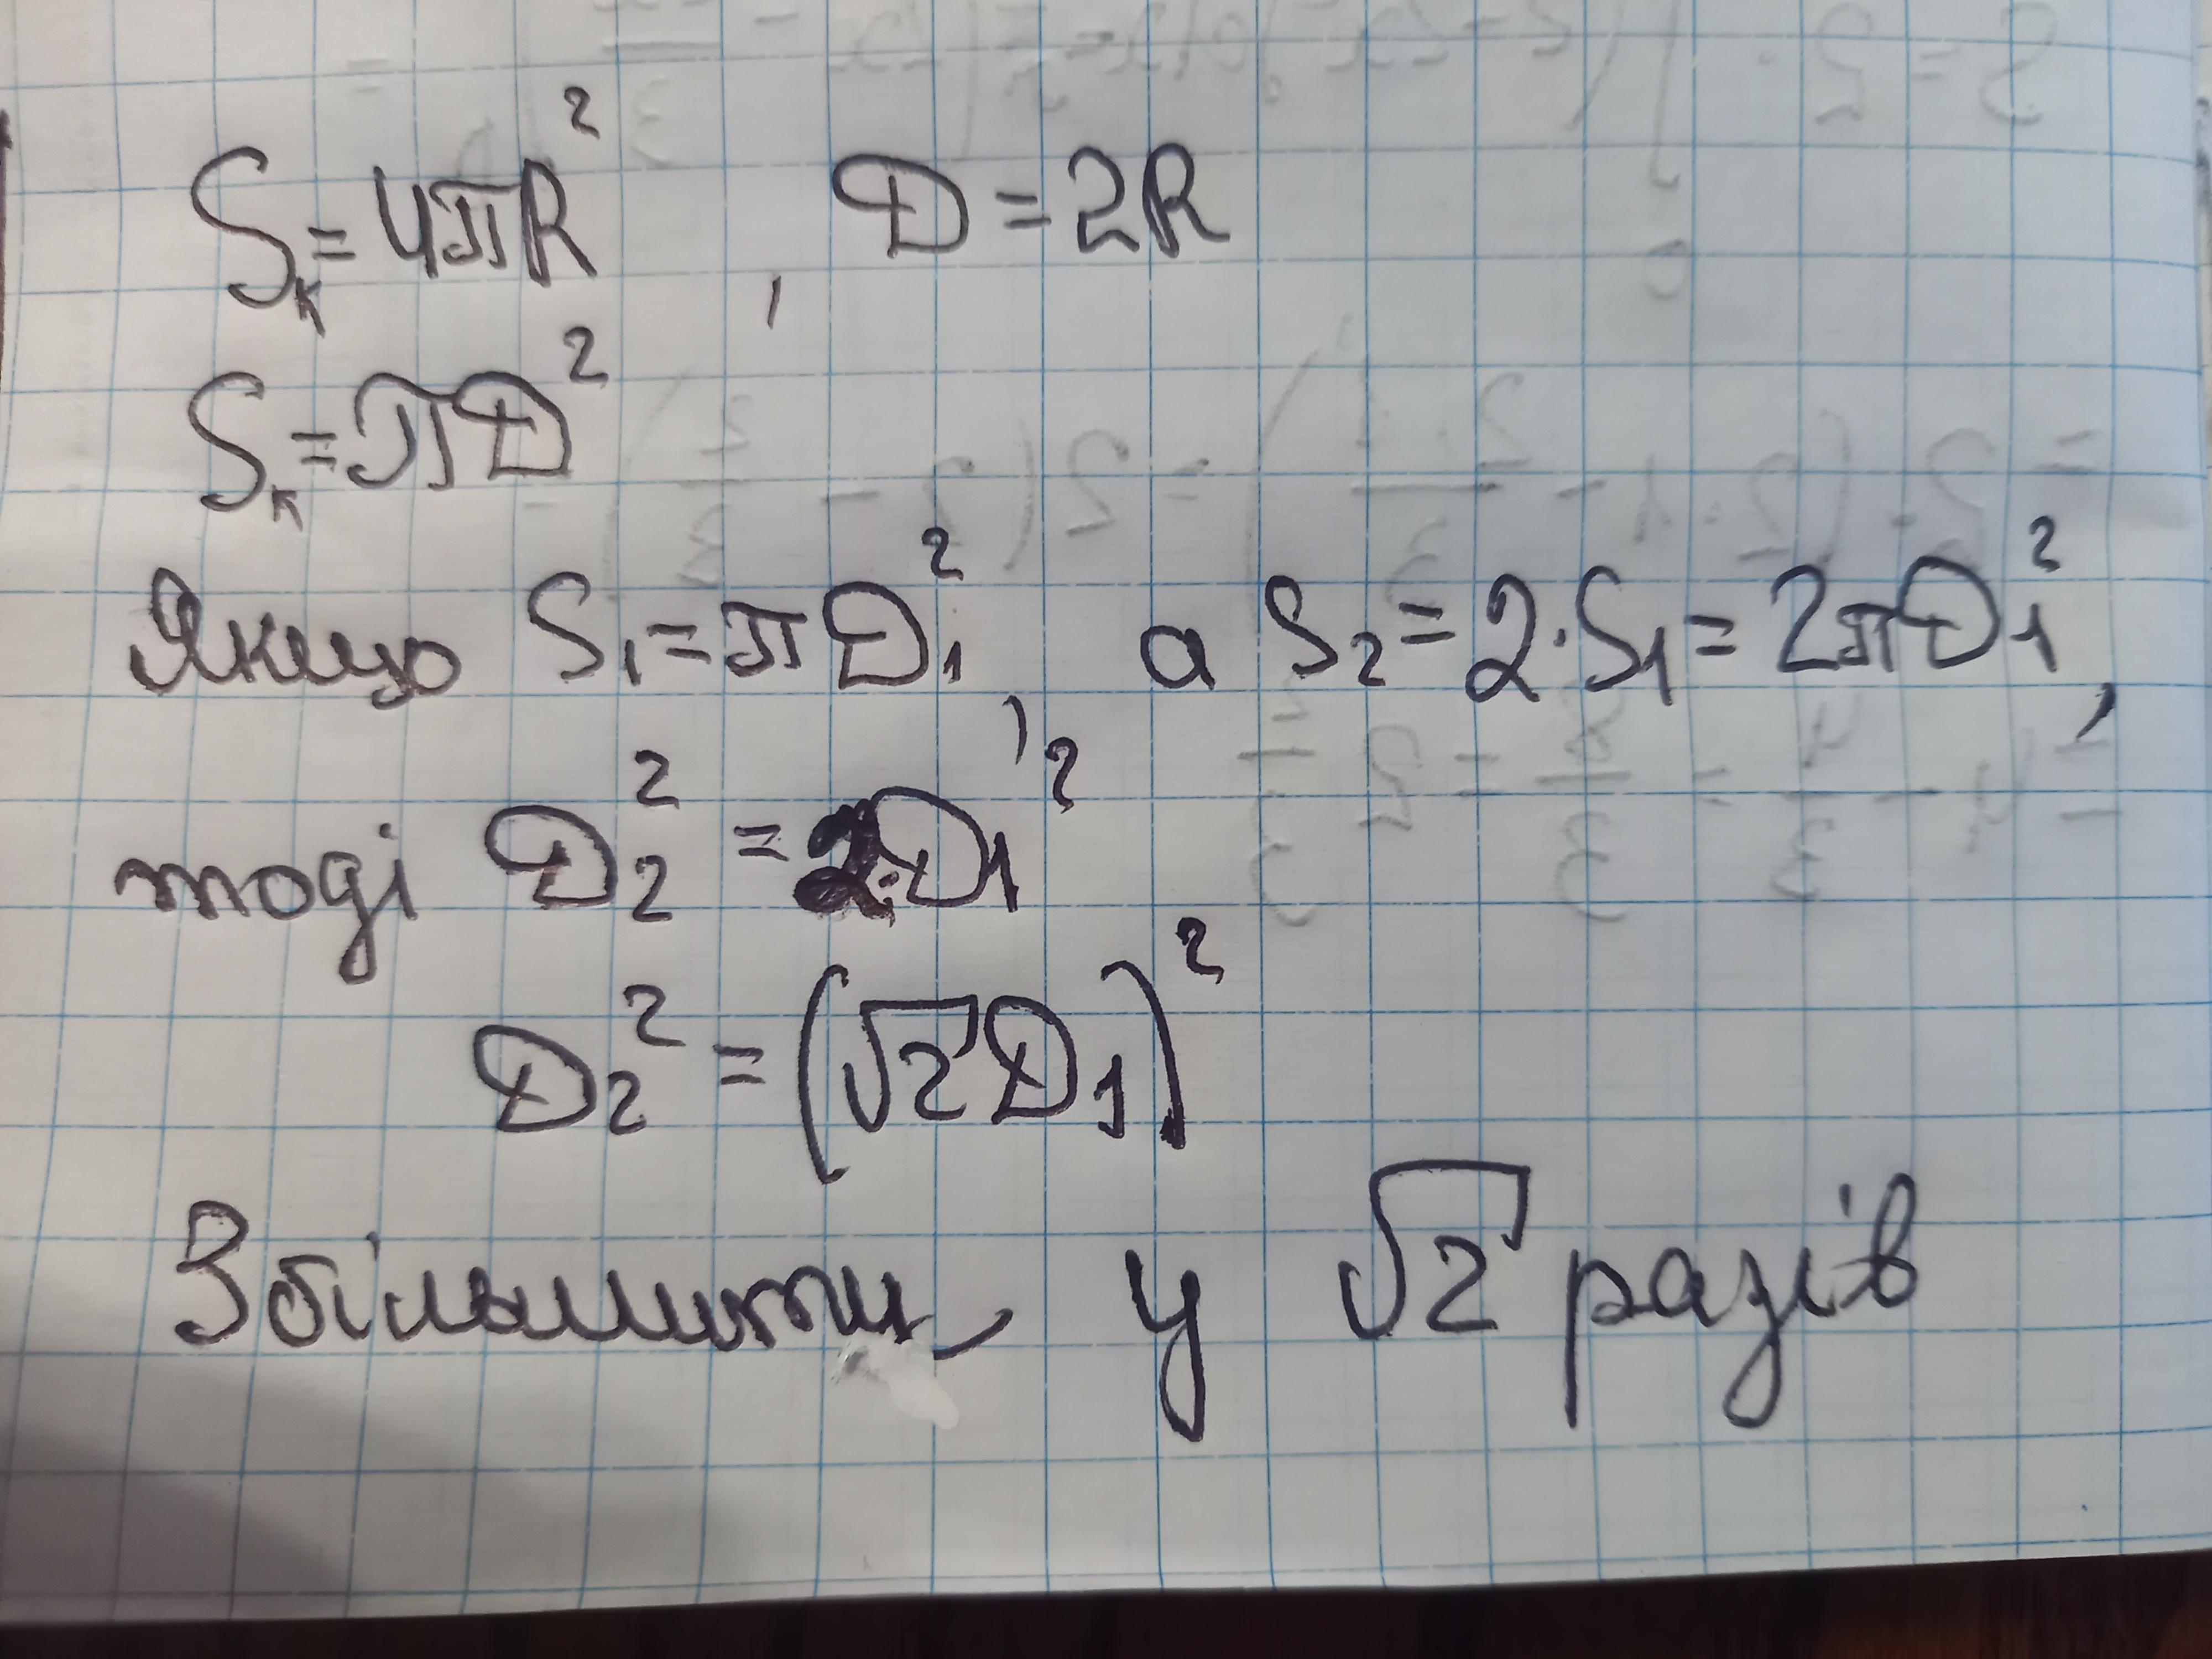 Sк = 4πR², D = 2R
Sк = πD²
Якщо S₁ = πD₁², а S₂ = 2·S₁ = 2πD₁²,
тоді D₂² = 2·D₁²
D₂² = (√2 D₁)²
Збільшити у √2 разів